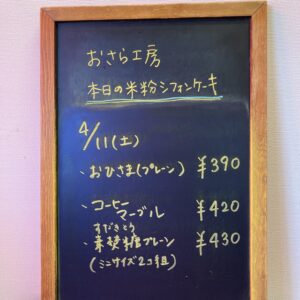 おさら工房
本日の米粉シフォンケーキ
4/11(土)
・おひさま(プレーン) ¥390
・コーヒー
マーブル ¥420
すだきとう
・素焚糖プレーン ¥430
(ミニサイズ2コ組)